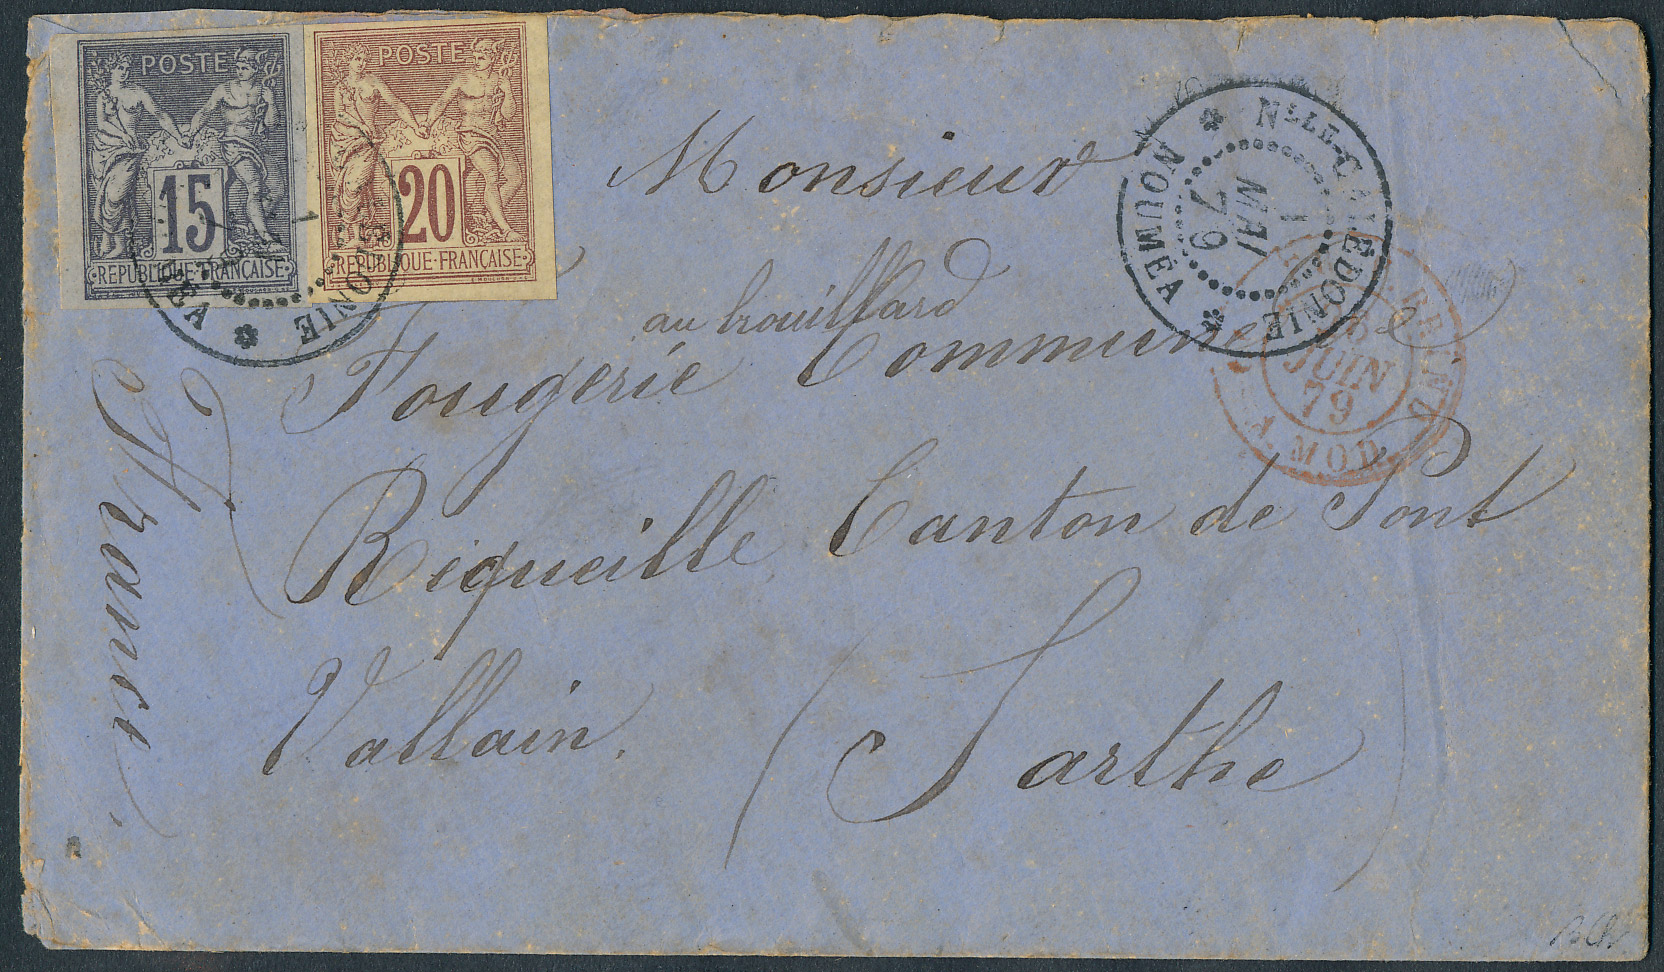 POSTE
15
REPUBLIQUE · FRANÇAISE
POSTE
20
REPUBLIQUE · FRANÇAISE
1
ÉA
ONIE
Nlle-CALÉDONIE
1
MAI
79
NOUMÉA
26
JUIN
79
MOD
Monsieur
au brouillard
Fougerie Commune de
Requeille Canton de Pont
Vallain.
(Sarthe)
France.